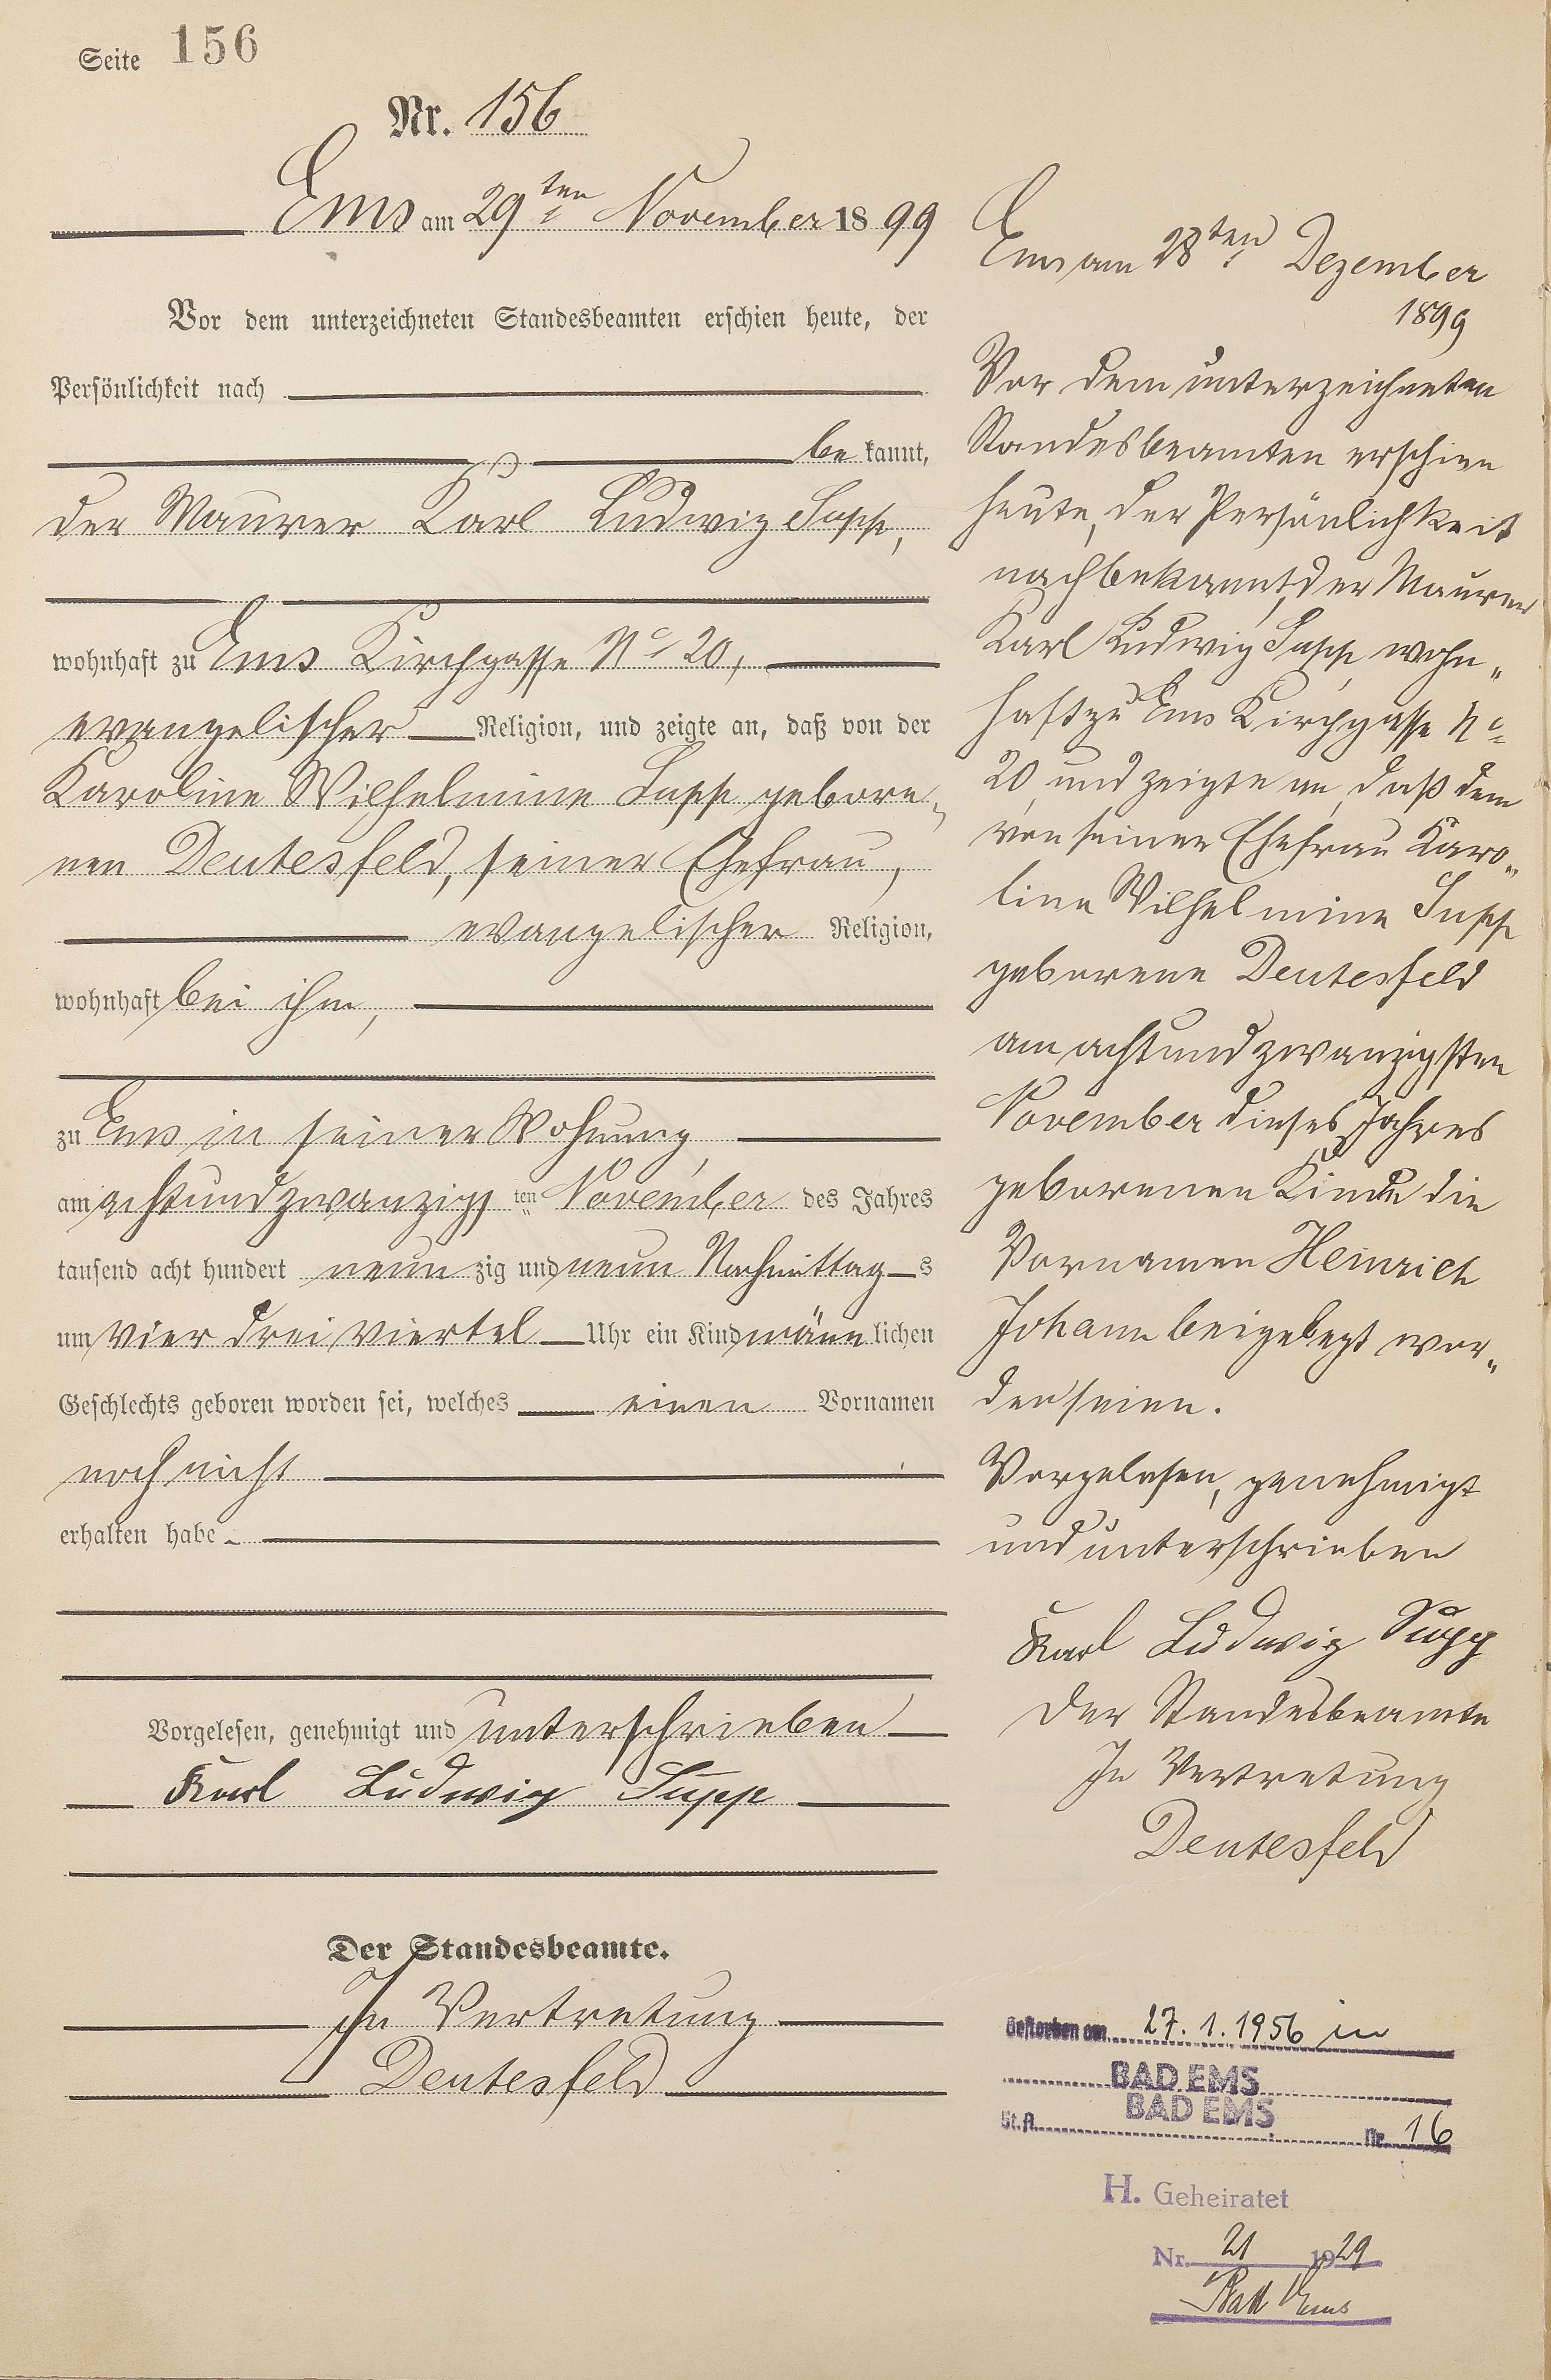 Seite 156
Nr. 156
Ems am 29ten November 1899
Vor dem unterzeichneten Standesbeamten erschien heute, der
Persönlichkeit nach
be kannt,
der Maurer Karl Ludwig Supp,
wohnhaft zu Ems Kirchgasse No 20,
evangelischer Religion, und zeigte an, daß von der
Karoline Wilhelmine Supp gebore„
nen Deutesfeld, seiner Ehefrau,
evangelischer Religion,
wohnhaft bei ihm,
zu Ems in seiner Wohnung,
am achtundzwanzigsten November des Jahres
tausend acht hundert neun zig und neun Nachmittags
um vier drei viertel Uhr ein Kind männlichen
Geschlechts geboren worden sei, welches einen Vornamen
noch nicht
erhalten habe
Vorgelesen, genehmigt und unterschrieben
Karl Ludwig Supp
Der Standesbeamte.
In Vertretung
Deutesfeld
Ems am 28ten Dezember
1899
Vor dem unterzeichneten
Standesbeamten erschien
heute, der Persönlichkeit
nach bekannt, der Maurer
Karl Ludwig Supp, wohn„
haft zu Ems Kirchgasse No
20, und zeigte an, daß dem
von seiner Ehefrau Karo„
line Wilhelmine Supp
geborene Deutesfeld
am achtundzwanzigsten
November dieses Jahres
geborenen Kinde die
Vornamen Heinrich
Johann beigelegt wor„
den seien.
Vorgelesen, genehmigt
und unterschrieben
Karl Ludwig Supp
Der Standesbeamte
In Vertretung
Deutesfeld
Gestorben am 27.1.1956 in
BAD EMS
BAD EMS
St.A. Nr. 16
H. Geheiratet
Nr. 21 1929
Bad Ems